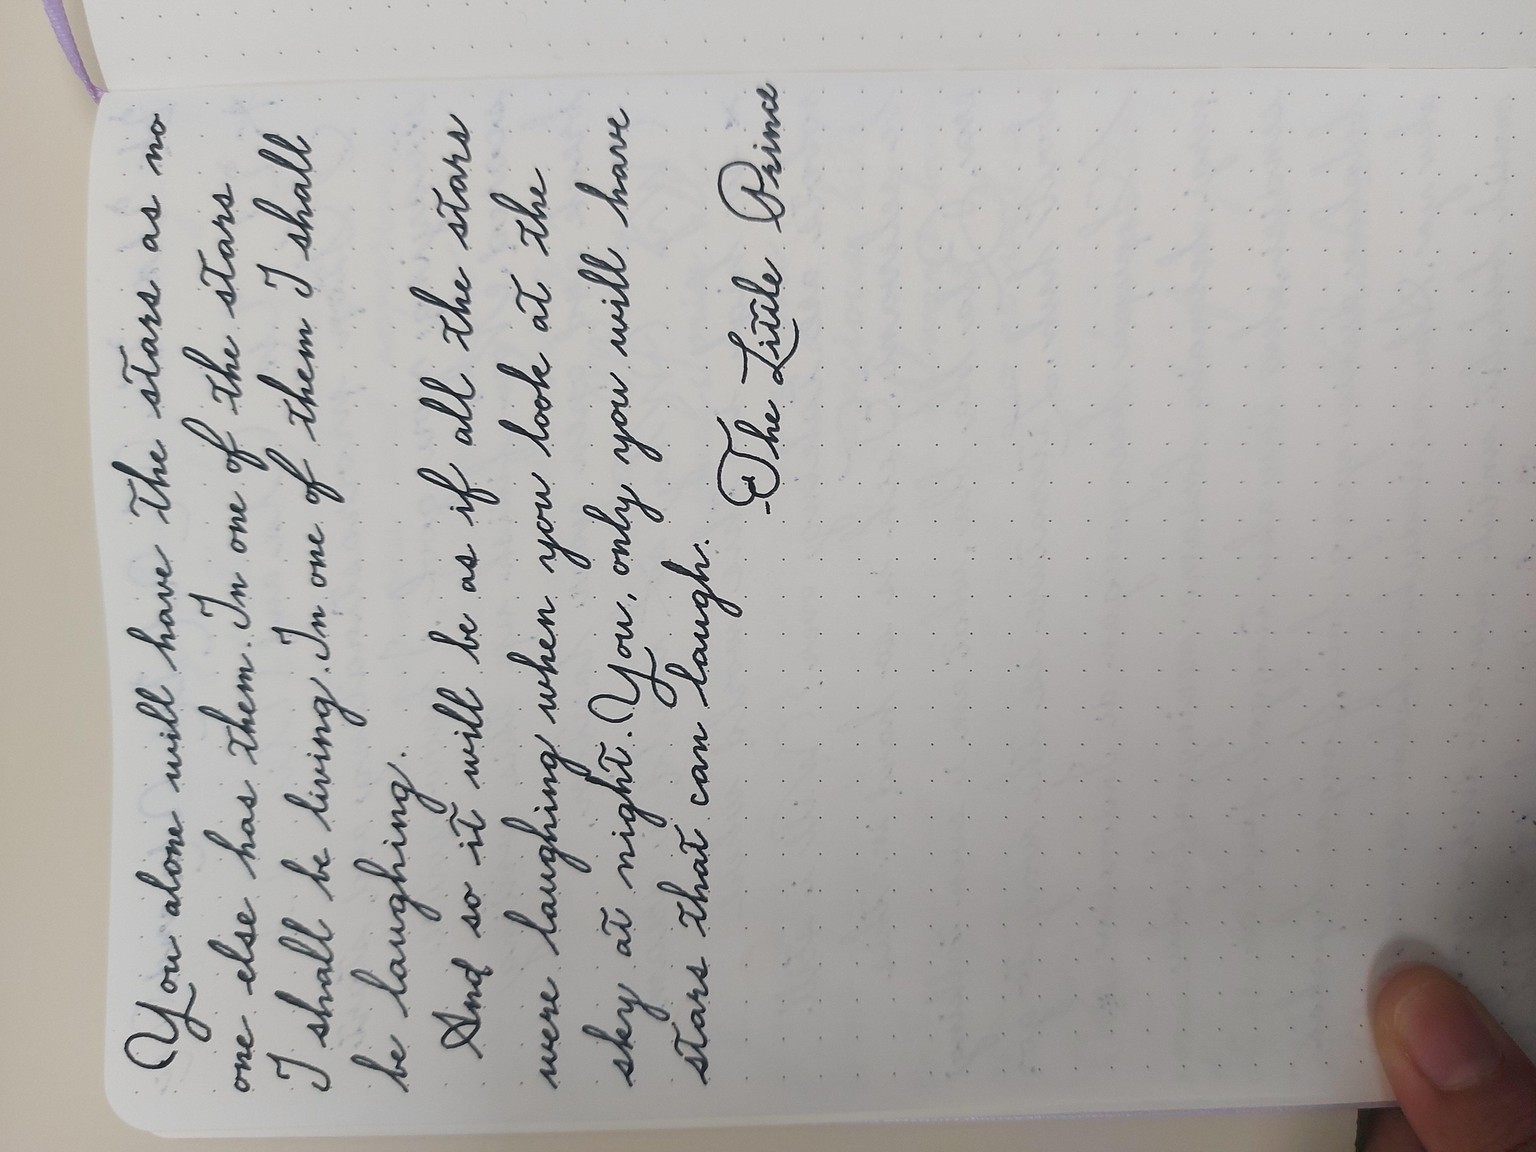 You alone will have the stars as no
one else has them. In one of the stars
I shall be living. In one of them I shall
be laughing.
And so it will be as if all the stars
were laughing when you look at the
sky at night. You, only you will have
stars that can laugh.
-The Little Prince